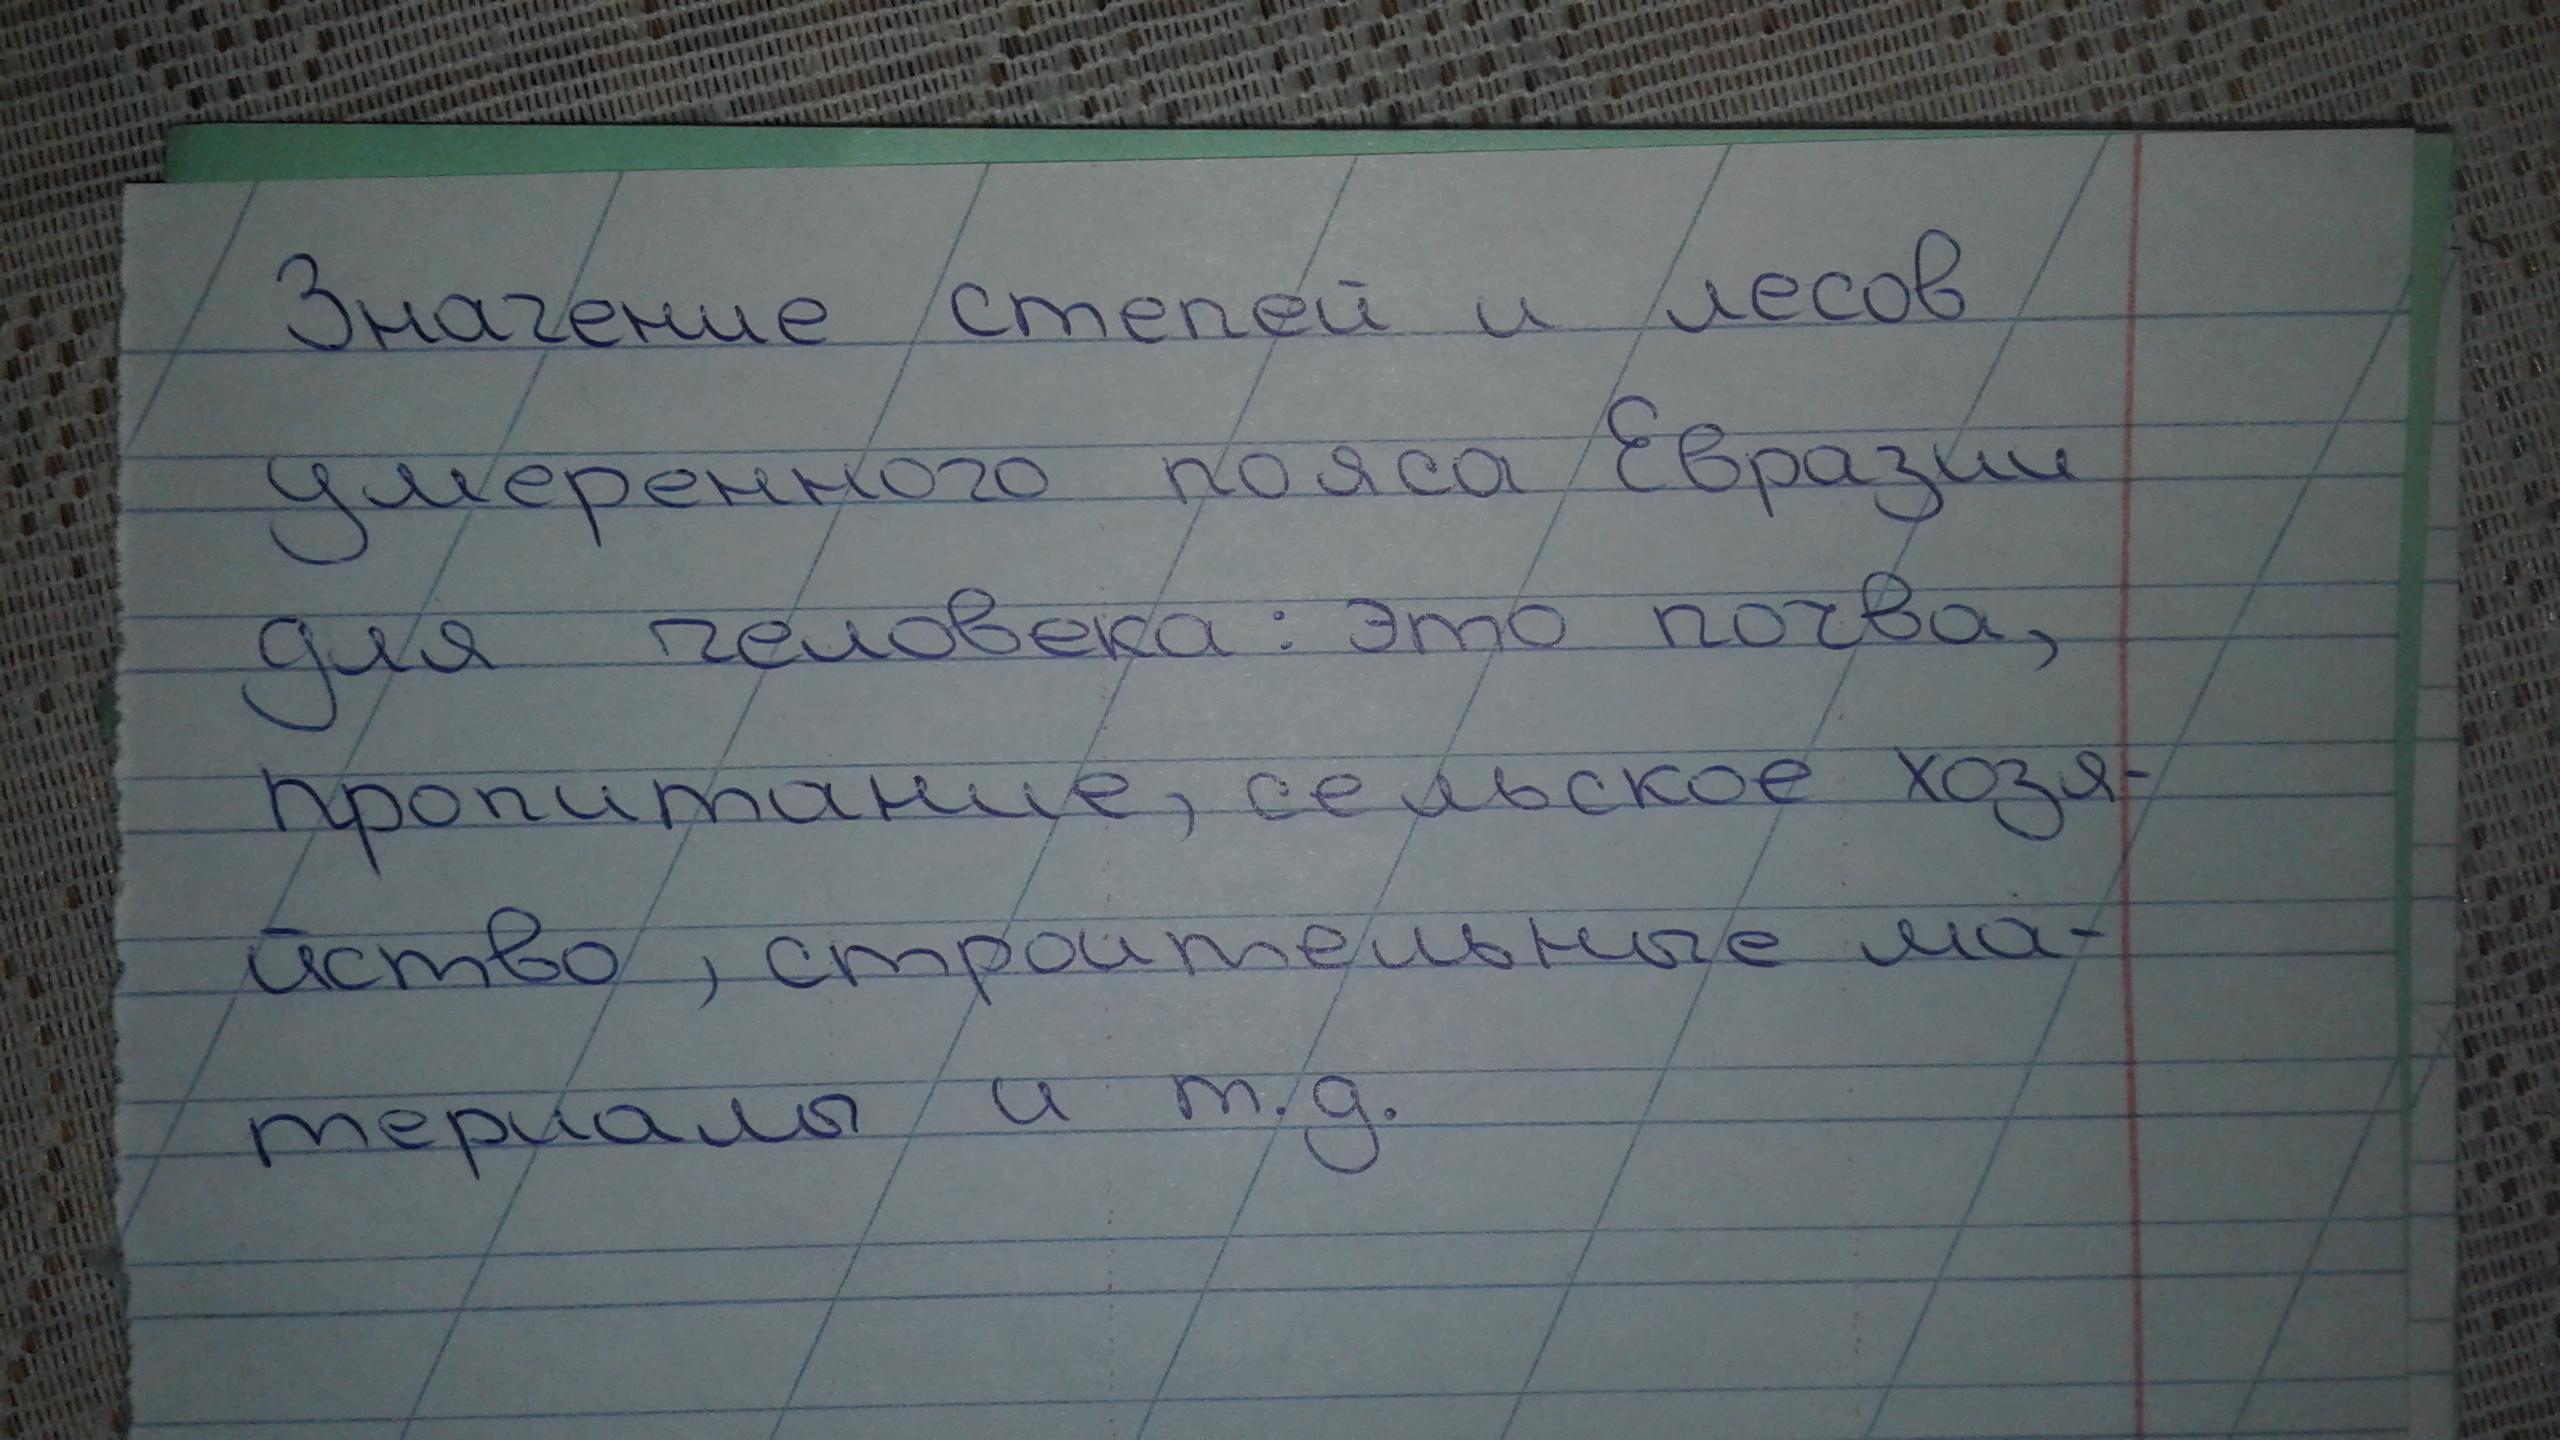 Значение степей и лесов
умеренного пояса Евразии
для человека: это почва,
пропитание, сельское хозя-
йство, строительные ма-
териалы и т.д.